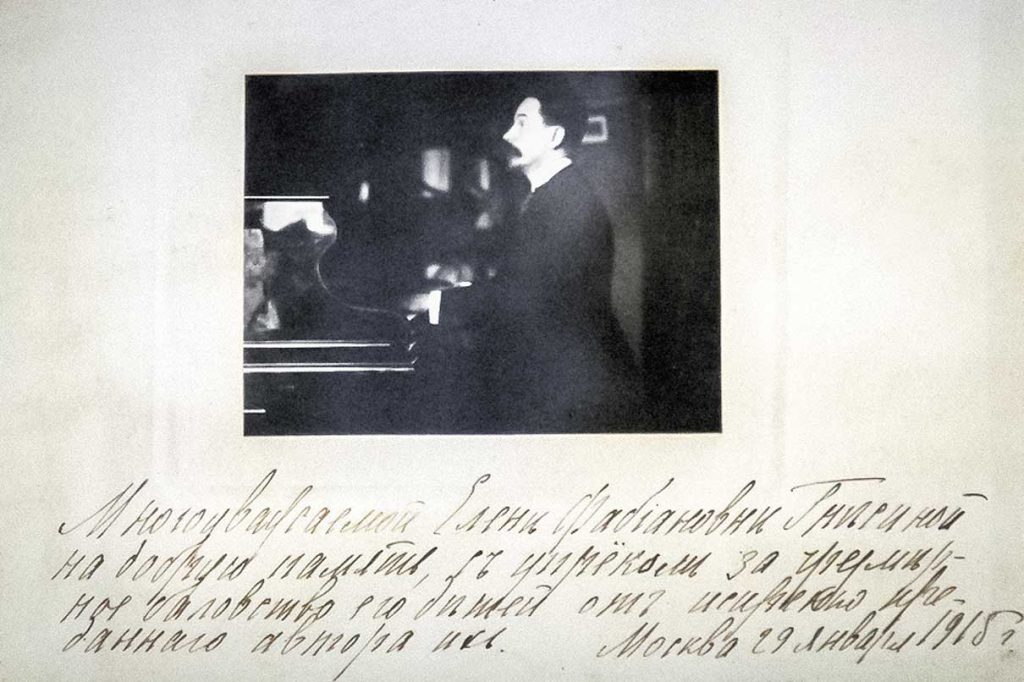 Многоуважаемой Елене Фабіановне Гнѣсиной
на добрую память, съ упрёкомъ за чрезмѣр-
ное баловство его дѣтей отъ искренно пре-
даннаго автора ихъ. Москва 29 января 1915 г.